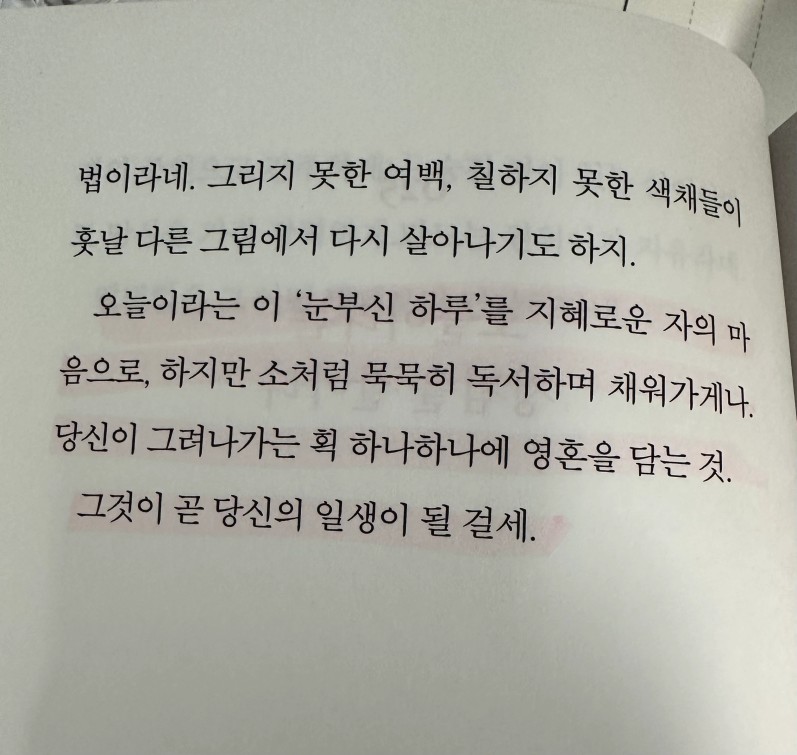 법이라네. 그리지 못한 여백, 칠하지 못한 색채들이
훗날 다른 그림에서 다시 살아나기도 하지.
오늘이라는 이 ‘눈부신 하루’를 지혜로운 자의 마
음으로, 하지만 소처럼 묵묵히 독서하며 채워가게나.
당신이 그려나가는 획 하나하나에 영혼을 담는 것.
그것이 곧 당신의 일생이 될 걸세.